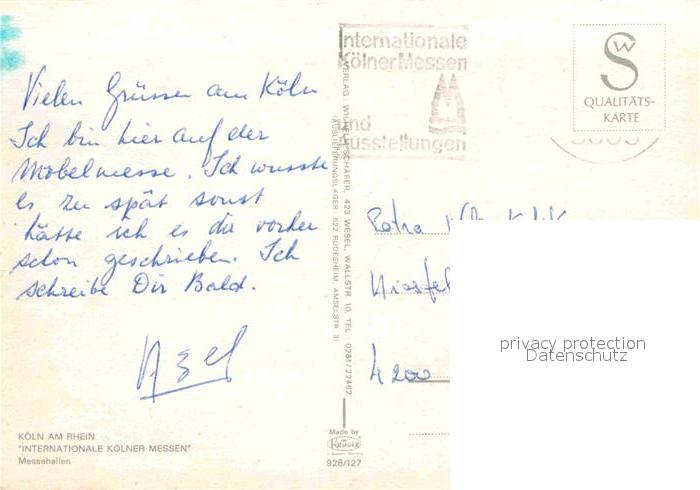 Internationale
Kölner Messen
und
Ausstellungen
SW
QUALITÄTS-
KARTE
Vielen Grüssen aus Köln
Ich bin hier auf der
Möbelmesse. Ich wusste
es zu spät sonst
hätte ich es dir vorher
schon geschrieben. Ich
schreibe Dir Bald.
Axel
VERLAG WILHELM SCHÄFER, 423 WESEL, WALLSTR. 10, TEL. 0281/22462
(AUSLIEFERUNGSLAGER 622 RÜDESHEIM, AMSELSTR. 3)
Petra
4200
privacy protection
Datenschutz
KÖLN AM RHEIN
"INTERNATIONALE KÖLNER MESSEN"
Messehallen
Made by
Krüger
928/127